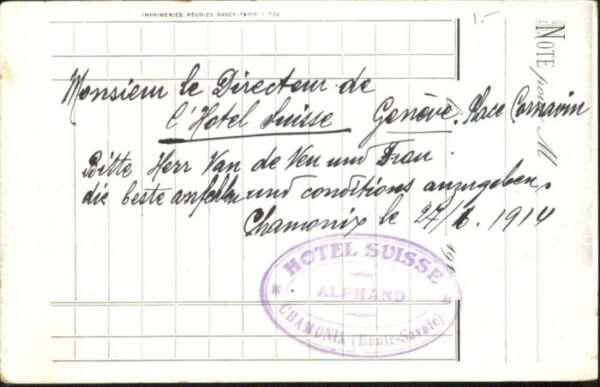 IMPRIMERIES RÉUNIES NANCY-PARIS
1.-
NOTE pour M
Monsieur le Directeur de
l'Hotel Suisse Genève. Place Cornavin
Bitte Herr Van de Ven und Frau
die beste und conditions anzugeben.
Chamonix le 27/ 1914
191
HOTEL SUISSE
ALPHAND
CHAMONIX (Haute-Savoie)